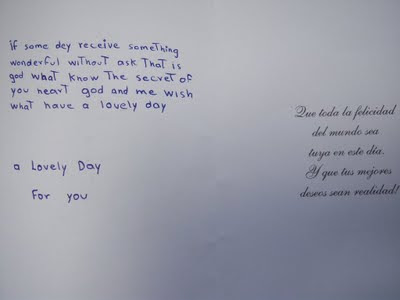 if some dey receive something
wonderful without ask that is
god what know the secret of
you heart god and me wish
what have a lovely day
a Lovely Day
For you
Que toda la felicidad
del mundo sea
tuya en este día.
Y que tus mejores
deseos sean realidad!